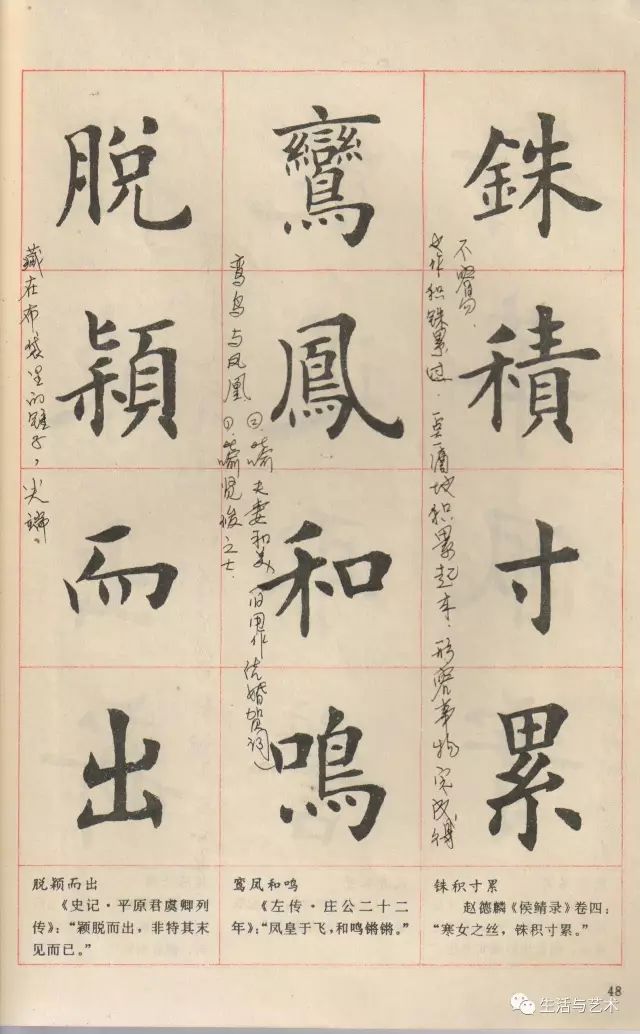 銖積寸累
鸞鳳和鳴
脱穎而出
又作积铢累寸.一点一滴地积累起来.形容事物完成得
不容易.
鸾鸟与凤凰 ①.喻贤俊之士.
②喻夫妻和美 旧用作结婚贺词
藏在布袋里的锥子,尖端。
脱颖而出
《史记·平原君虞卿列
传》:“颖脱而出,非特其末
见而已。”
鸾凤和鸣
《左传·庄公二十二
年》:“凤皇于飞,和鸣锵锵。”
铢积寸累
赵德麟《侯鲭录》卷四:
“寒女之丝,铢积寸累。”
48
生活与艺术